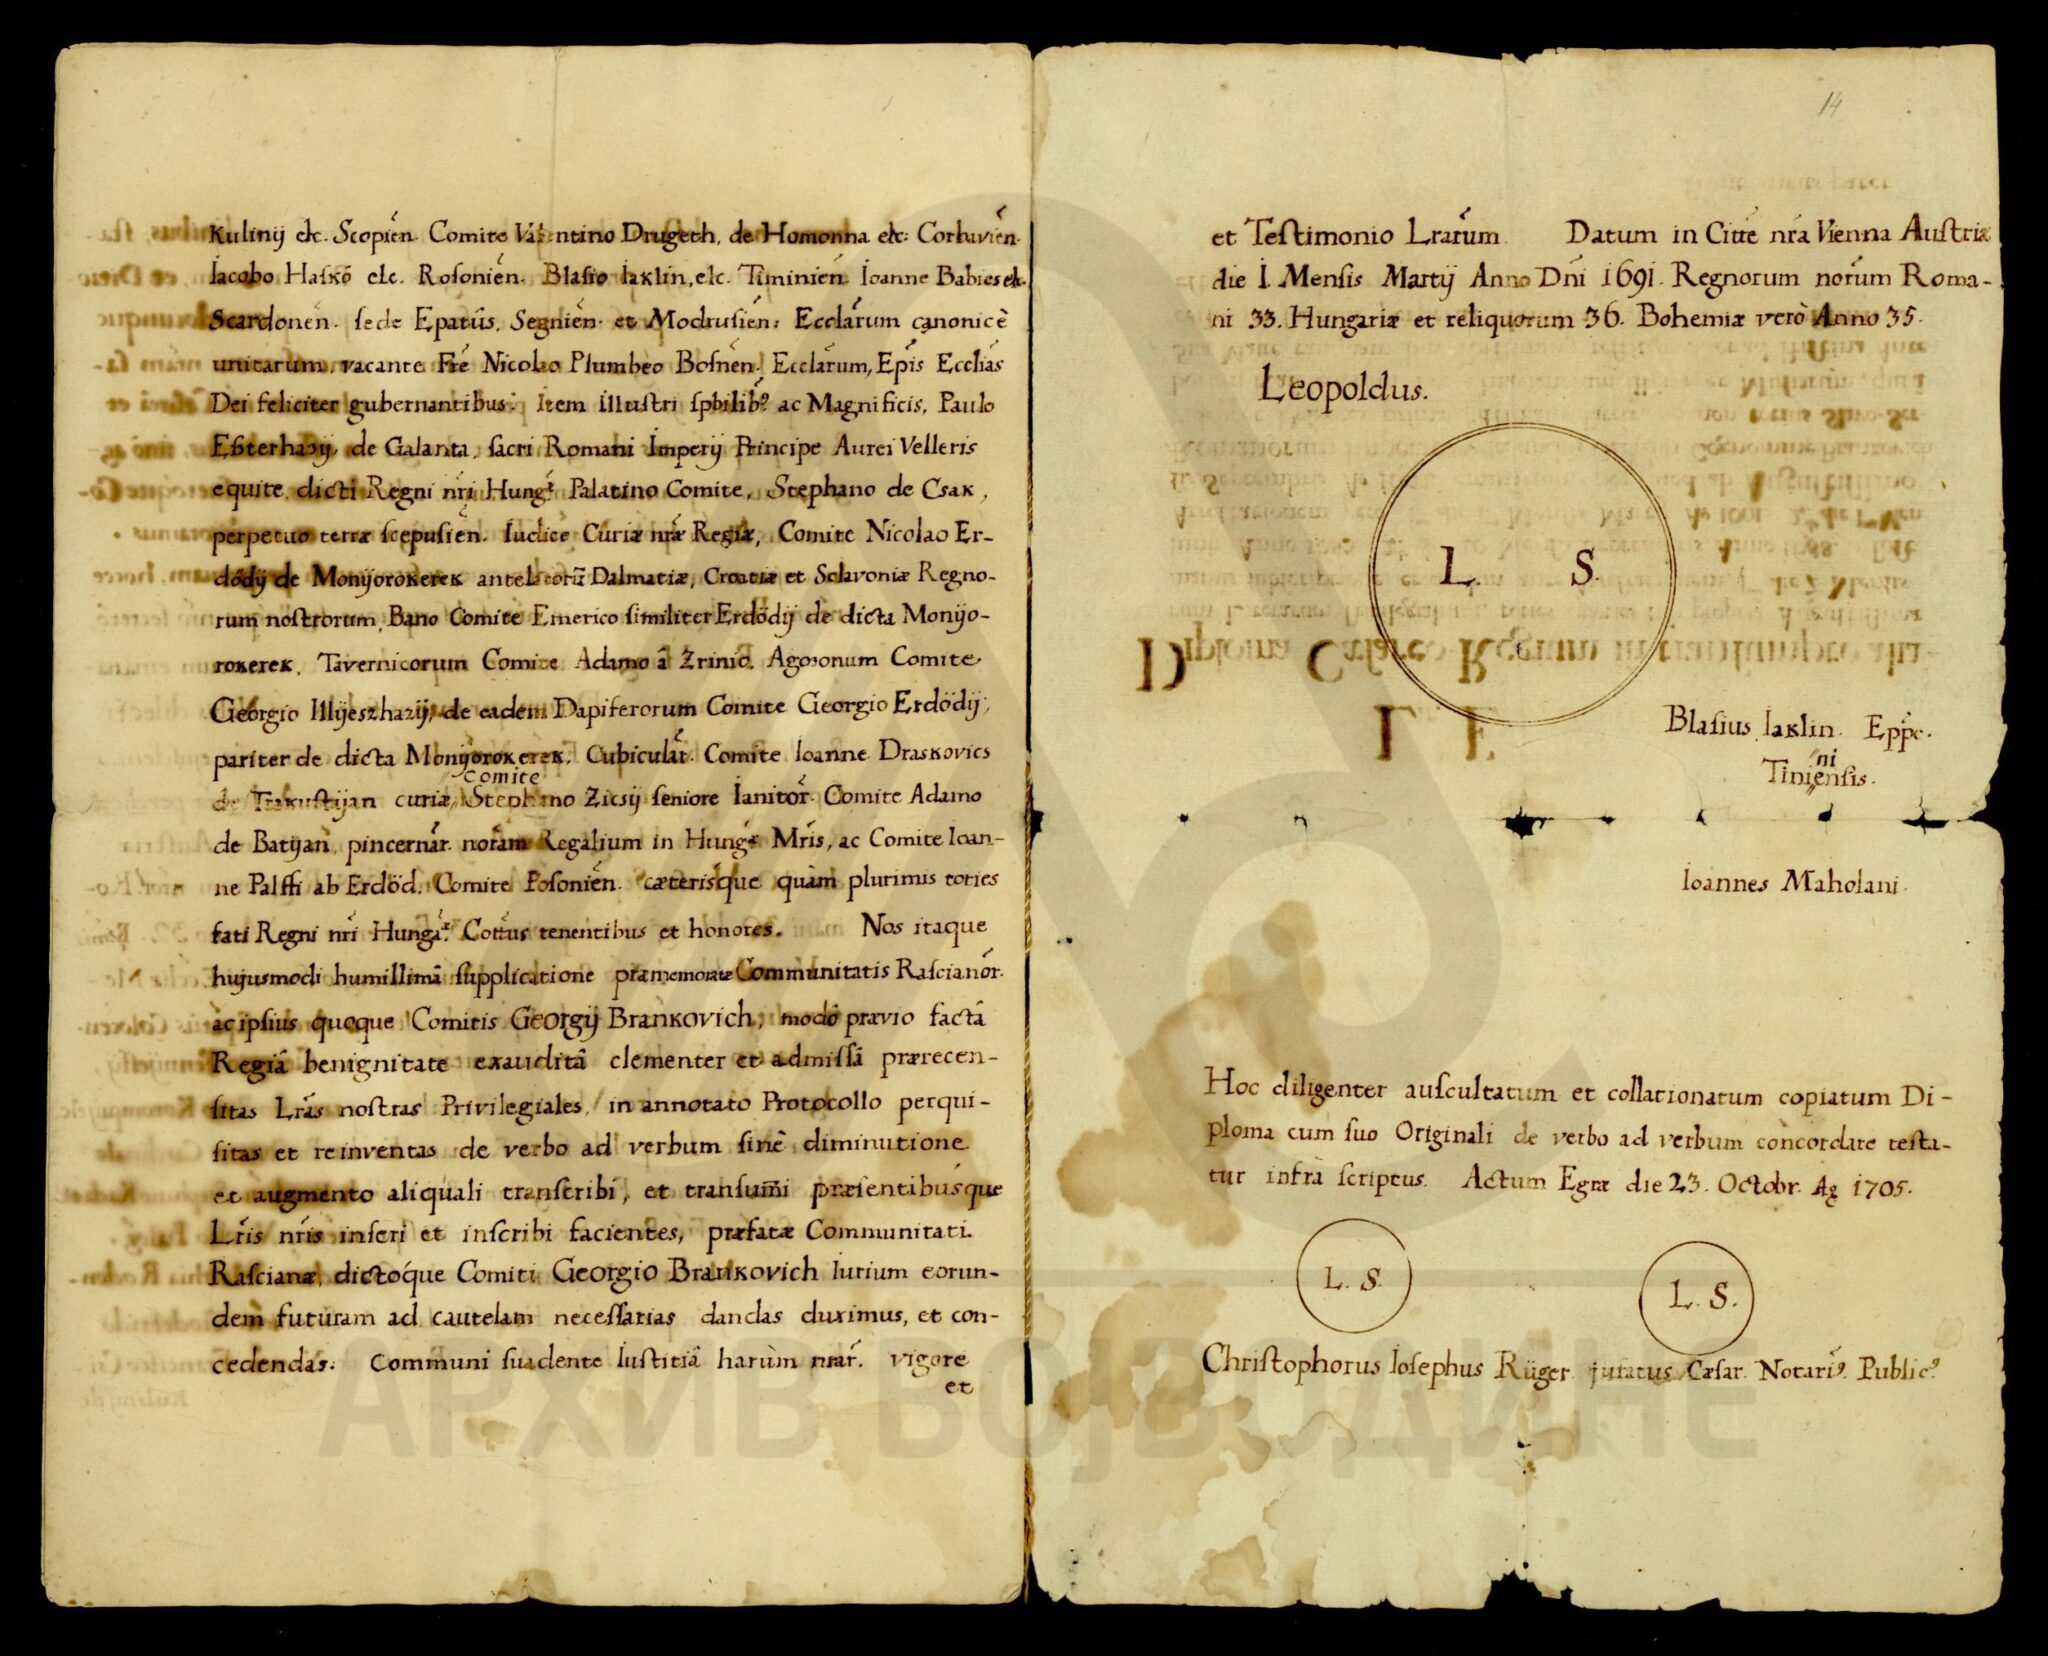 Kulinij etc. Scopien̄. Comite Valentino Drugeth, de Homonna etc: Corbavien̄.
Iacobo Haſkó etc. Roſonien̄. Blaſio Iaklin, etc. Tininien̄. Ioanne Babics etc.
Scardonen̄. ſede Epatūs, Segnien̄. et Modruſien̄: Ecclārum canonicè
unitarum, vacante Frē Nicolao Plumbeo Boſnen̄. Ecclārum, Epīs Eccliās
Dei feliciter gubernantibus. Item illuſtri ſpbilib9 ac Magnificis, Paulo
Eſzterhazij, de Galanta, ſacri Romani Imperij Principe Aurei Velleris
equite, dicti Regni nr̄i Hungæ Palatino Comite, Stephano de Csak,
perpetuo terræ ſcepuſien̄. Iudice Curiæ nr̄æ Regiæ, Comite Nicolao Er-
dődij de Monijorokerek antelatorū Dalmatiæ, Croatiæ et Sclavoniæ Regno-
rum noſtrorum, Bano Comite Emerico ſimiliter Erdödij de dicta Monijo-
rokerek, Tavernicorum Comite Adamo â Zrinio, Agoſonum Comite
Georgio Illijeszhazij, de eadem Dapiferorum Comite Georgio Erdödij,
pariter de dicta Monijorokerek, Cubiculār. Comite Ioanne Draskovics
comite
de Trakuſtijan curiæ, Stephano Zicsij ſeniore Ianitōr. Comite Adamo
de Batijan, pincernār. norām Regalium in Hungæ Mrīs, ac Comite Ioan-
ne Palffi ab Erdöd. Comite Poſonien̄. cæterisq́ue quàm plurimis toties
fati Regni nr̄i Hungaæ. Cottūs tenentibus et honores. Nos itaque
hujusmodi humillimâ ſupplicatione præmemoratæ Communitatis Raſcianōr.
ac ipſius quoque Comitis Georgij Brankovich, modô prævio factâ
Regiâ benignitate exauditâ clementer et admiſſâ prærecen-
ſitas Lrās noſtras Privilegiales, in annotato Protocollo perqui-
ſitas et reinventas de verbo ad verbum ſinè diminutione
et augmento aliquali tranſcribi, et tranſumi præſentibúsque
Lrīs nrīs inſeri et inſcribi facientes, præfatæ Communitati
Raſcianæ, dictoq́ue Comiti Georgio Brankovich Iurium eorun-
dem futuram ad cautelam neceſſarias dandas duximus, et con-
cedendas: Communi ſuadente Iuſtitiâ harùm nrār. vigore
et
14
et Teſtimonio Lrārum Datum in Citte nrā Vienna Auſtriæ
die I. Menſis Martij Anno Dnī 1691. Regnorum norūm Roma-
ni 33. Hungariæ et reliquorum 36. Bohemiæ verò Anno 35.
Leopoldus.
L. S.
Blaſius Iaklin. Epp̄e.
ni
Tinienſis.
Ioannes Maholani.
Hoc diligenter auſcultatum et collationatum copiatum Di-
ploma cum ſuo Originali de verbo ad verbum concordare teſta-
tur infrà ſcriptus. Actum Egræ die 23. Octobr. Aọ 1705.
L. S. L. S.
Chriſtophorus Ioſephus Rüger juratus Cæſar. Notari9 Public9
АРХИВ ВОЈВОДИНЕ